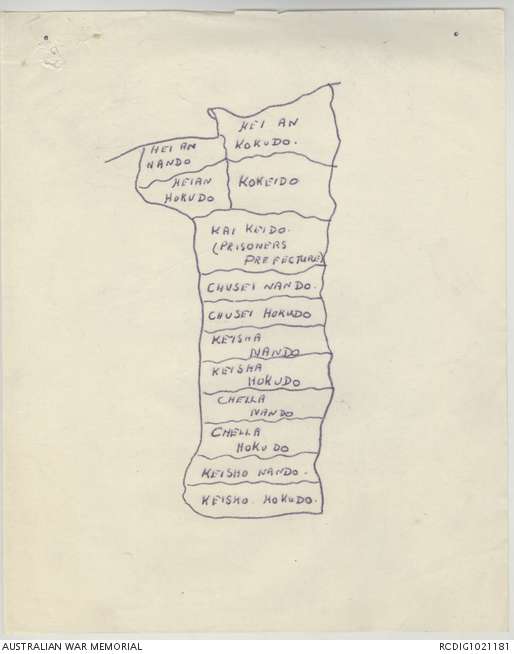 HEI AN
KOKUDO.
HEI AN
NANDO
HEIAN
HOKUDO
KOKEIDO
KAI KEIDO.
(PRISONERS
PREFECTURE)
CHUSEI NANDO.
CHUSEI HOKUDO
KEISHA
NANDO
KEISHA
HOKUDO
CHELLA
NANDO
CHELLA
HOKUDO
KEISHO NANDO.
KEISHO HOKUDO.
AUSTRALIAN WAR MEMORIAL
RCDIG1021181